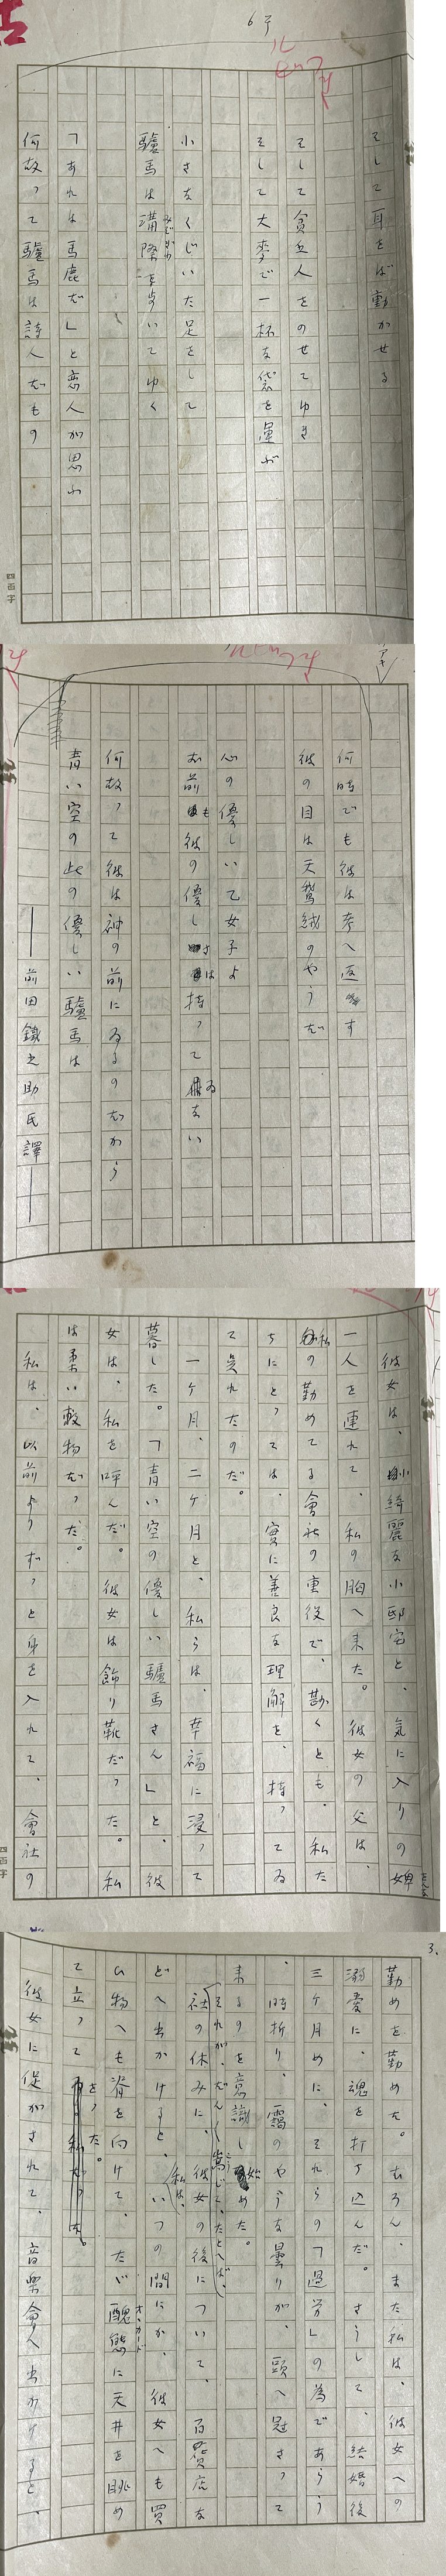 6号
そして耳をば動かせる
そして貧乏人をのせてゆき
そして大麥で一杯な袋を運ぶ
小さなくじいた足をして
驢馬は溝際を歩いてゆく
みぞぎわ
「あれは馬鹿だ」と恋人が思ふ
何故って驢馬は詩人だもの
四百字
アキ
何時でも彼は考へ返す
彼の目は天鵞絨のやうだ
心の優しい乙女子よ
お前も彼の優しさは持って居ない
ゐ
何故って彼は神の前にゐるのだから
青い空の此の優しい驢馬は
――前田鐵之助氏譯――
彼女は、小綺麗な小邸宅と、気に入りの婢
一人を連れて、私の胸へ来た。彼女の父は、
私の勤めてる會社の重役で、尠くとも、私た
ちにとっては、實に善良な理解を、持ってゐ
て呉れたのだ。
一ケ月、二ケ月と、私らは、幸福に浸って
暮した。「青い空の優しい驢馬さん」と、彼
女は、私を呼んだ。彼女は飾り靴だった。私
は柔い敷物だった。
私は、以前よりずっと身を入れて、會社の
四百字
3.
勤めを勤めた。むろん、また私は、彼女への
溺愛に、魂を打ち込んだ。さうして、結婚後
三ケ月めに、それらの「過労」の為であらう
、時折り、靄のやうな曇りが、頭へ冠さって
来るのを意識し始めた。
それが、だん〳〵嵩じて、たとへば、
社の休みに、彼女の後について、百貨店な
私は、
どへ出かけると、いつの間にか、彼女へも買
ひ物へも脊を向けて、たゞ醜態に天井を眺め
て立って
をった。
彼女に促がされて、音楽會へ出かけると、